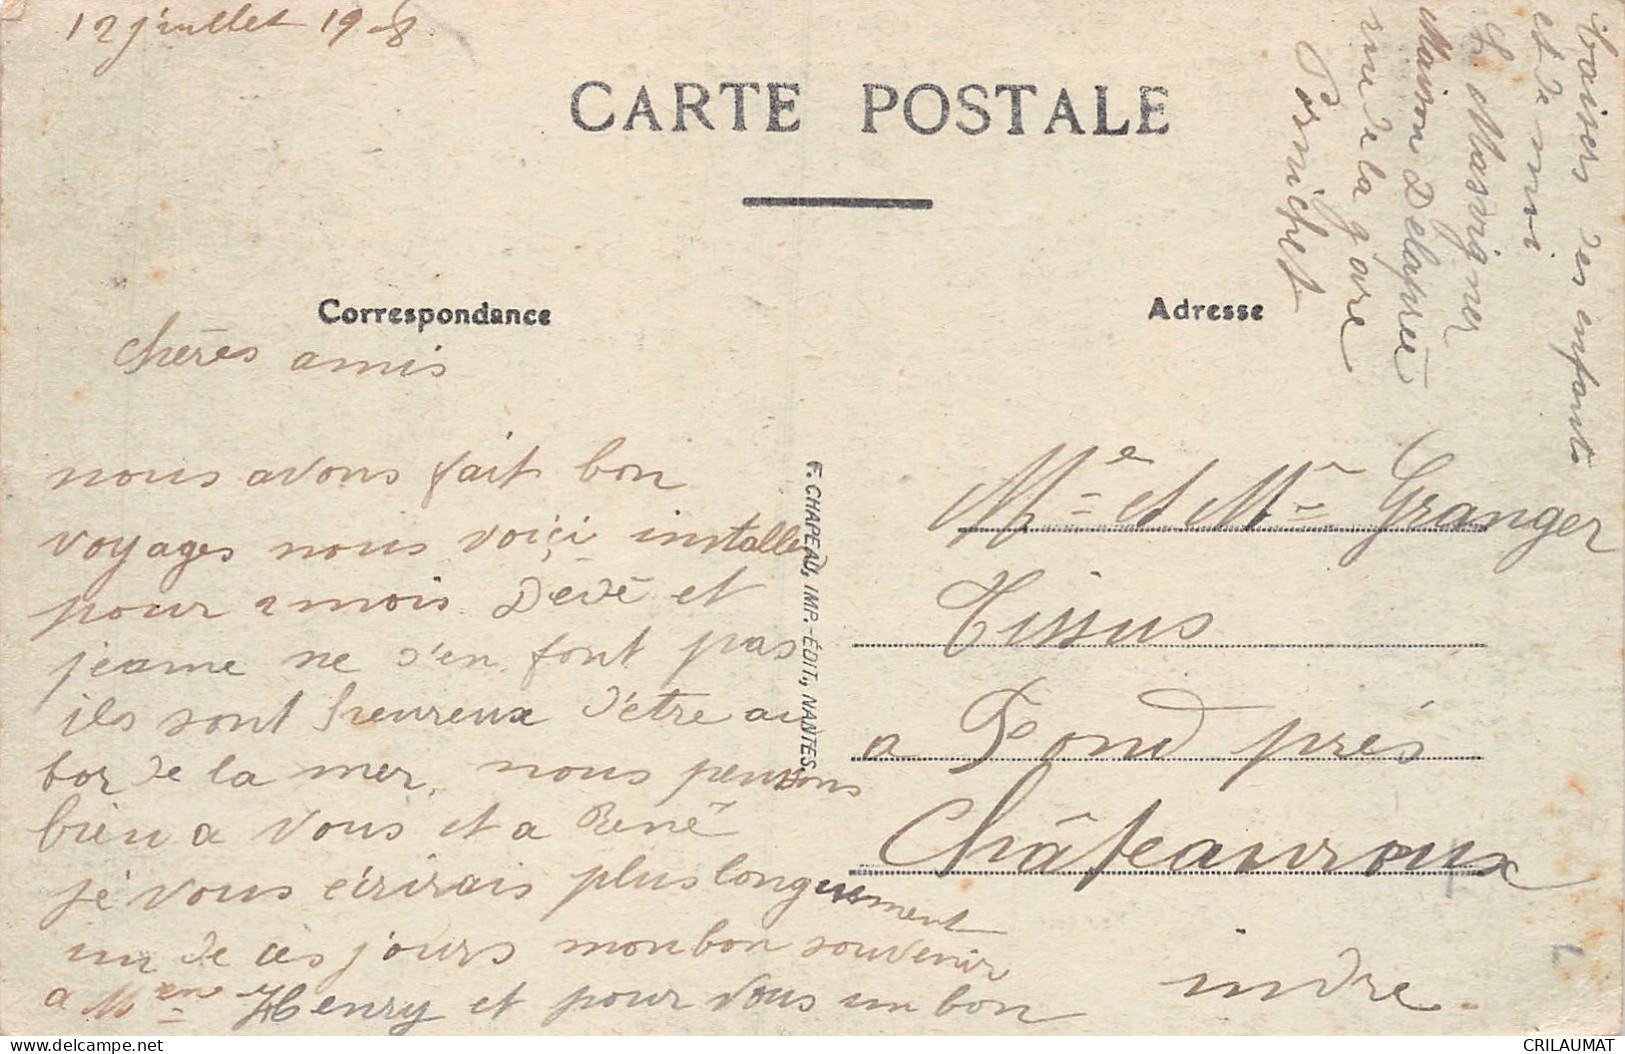 12 juillet 19 8
CARTE POSTALE
Correspondance
Adresse
chères amis
nous avons fait bon
voyages nous voici installer
pour 2 mois Dédé et
jeanne ne s'en font pas
ils sont heureux d'être au
bor de la mer, nous pensons
bien a vous et a René
je vous ecrirais plus longuement
un de ces jours mon bon souvenir
a Mme Henry et pour vous un bon
baisers des enfants
et de moi
L Masvigner
Maison Delaprée
rue de la gare
Pornichet
F. CHAPEAU, IMP.-ÉDIT., NANTES.
Mr et Mme Granger
Tissus
a Fond près
Châteauroux
indre.
CRILAUMAT